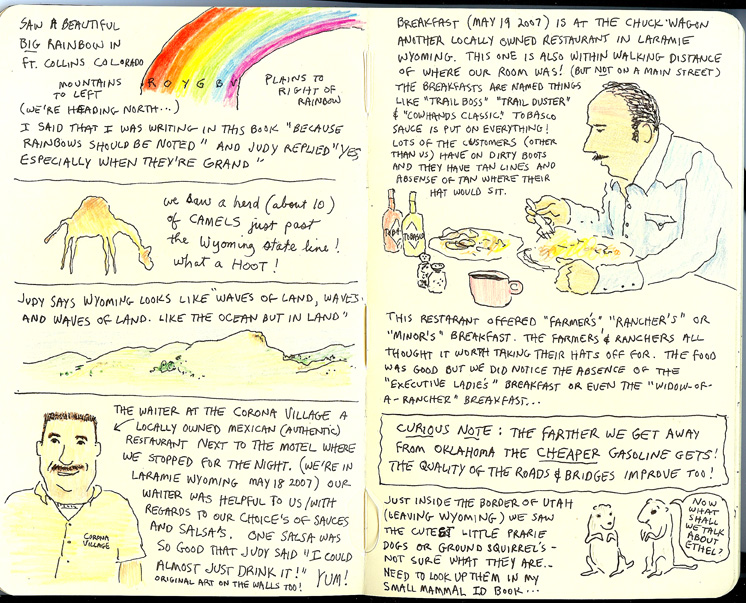 SAW A BEAUTIFUL
BIG RAINBOW IN
FT. COLLINS COLORADO
R O Y G B V
MOUNTAINS
TO LEFT
PLAINS TO
RIGHT OF
RAINBOW
(WE'RE HEADING NORTH...)
I SAID THAT I WAS WRITING IN THIS BOOK "BECAUSE
RAINBOWS SHOULD BE NOTED" AND JUDY REPLIED "YES,
ESPECIALLY WHEN THEY'RE GRAND"
we saw a herd (about 10)
of CAMELS just past
the Wyoming state line!
what a HOOT!
JUDY SAYS WYOMING LOOKS LIKE "WAVES OF LAND, WAVES
AND WAVES OF LAND. LIKE THE OCEAN BUT IN LAND"
THE WAITER AT THE CORONA VILLAGE A
LOCALLY OWNED MEXICAN (AUTHENTIC)
RESTAURANT NEXT TO THE MOTEL WHERE
WE STOPPED FOR THE NIGHT. (WE'RE IN
LARAMIE WYOMING MAY 18 2007) OUR
WAITER WAS HELPFUL TO US/WITH
REGARDS TO OUR CHOICE'S OF SAUCES
AND SALSA'S. ONE SALSA WAS
SO GOOD THAT JUDY SAID "I COULD
ALMOST JUST DRINK IT!" YUM!
ORIGINAL ART ON THE WALLS TOO!
CORONA
VILLAGE
BREAKFAST (MAY 19 2007) IS AT THE CHUCK WAGON
ANOTHER LOCALLY OWNED RESTAURANT IN LARAMIE
WYOMING. THIS ONE IS ALSO WITHIN WALKING DISTANCE
OF WHERE OUR ROOM WAS! (BUT NOT ON A MAIN STREET)
THE BREAKFASTS ARE NAMED THINGS
LIKE "TRAIL BOSS" "TRAIL DUSTER"
& "COWHANDS CLASSIC." TOBASCO
SAUCE IS PUT ON EVERYTHING!
LOTS OF THE CUSTOMERS (OTHER
THAN US) HAVE ON DIRTY BOOTS
AND THEY HAVE TAN LINES AND
ABSENSE OF TAN WHERE THEIR
HAT WOULD SIT.
TOBASCO
THIS RESTARANT OFFERED "FARMER'S" "RANCHER'S" OR
"MINOR'S" BREAKFAST. THE FARMERS & RANCHERS ALL
THOUGHT IT WORTH TAKING THEIR HATS OFF FOR. THE FOOD
WAS GOOD BUT WE DID NOTICE THE ABSENCE OF THE
"EXECUTIVE LADIE'S" BREAKFAST OR EVEN THE "WIDOW-OF-
A-RANCHER" BREAKFAST...
CURIOUS NOTE: THE FARTHER WE GET AWAY
FROM OKLAHOMA THE CHEAPER GASOLINE GETS!
THE QUALITY OF THE ROADS & BRIDGES IMPROVE TOO!
JUST INSIDE THE BORDER OF UTAH
(LEAVING WYOMING) WE SAW
THE CUTEST LITTLE PRARIE
DOGS OR GROUND SQUIRREL'S -
NOT SURE WHAT THEY ARE..
NEED TO LOOK UP THEM IN MY
SMALL MAMMAL ID BOOK...
NOW
WHAT
SHALL
WE TALK
ABOUT
ETHEL?